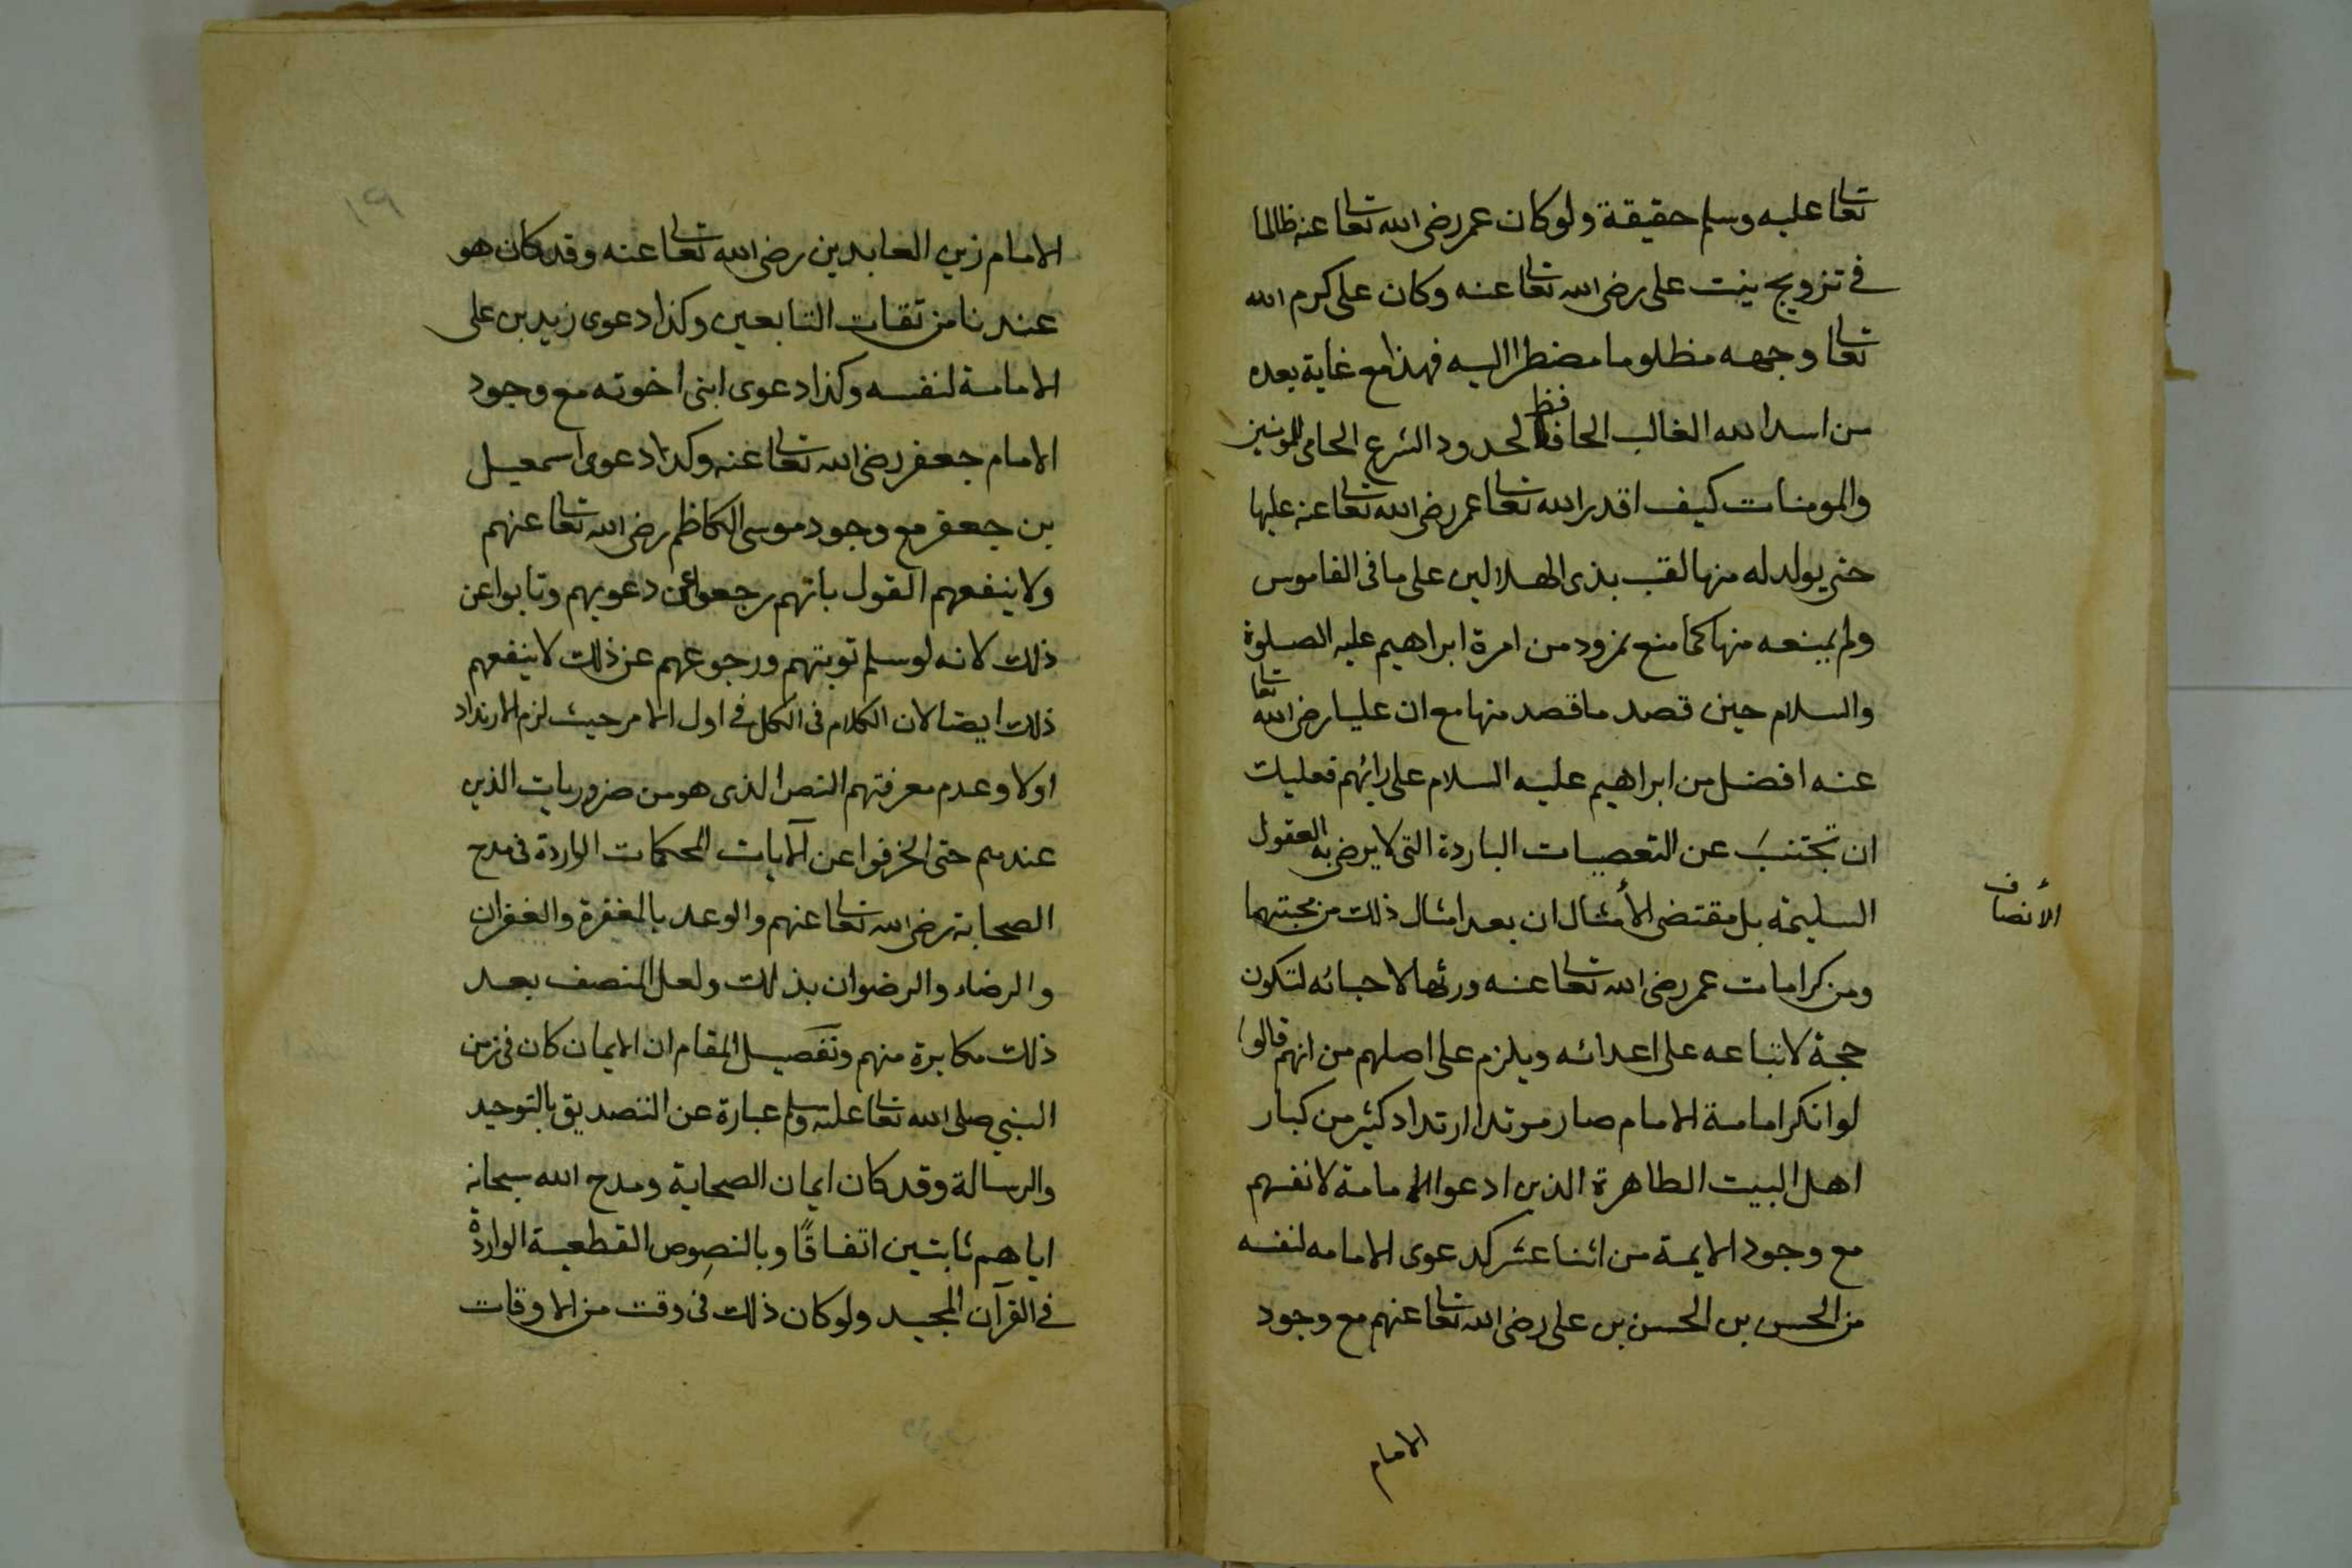 تعالى عليه وسلم حقيقة ولو كان عمر رضى الله تعالى عنه ظالما
فى تزويج بنت على رضى الله تعالى عنه وكان على كرم الله
تعالى وجهه مظلوما مضطرا اليه فهذا مع غاية بعده
من اسد الله الغالب الحافظ لحدود الشرع الحامى للمومنين
والمومنات كيف اقدر الله تعالى عمر رضى الله تعالى عنه عليها
حتى يولد له منها لقب بذى الهلالين على ما فى القاموس
ولم يمنعه منها كما منع نمرود من امرة ابراهيم عليه الصلوة
والسلام حين قصد ما قصد منها مع ان عليا رضى الله تعالى
عنه افضل من ابراهيم عليه السلام على رائهم فعليك
ان تجتنب عن التعصبات الباردة التى لا يرضى به العقول
السليمة بل مقتضى الأمثال ان بعد امثال ذلك من محبتهما
الأنصاف
ومن كرامات عمر رضى الله تعالى عنه ورثها لاحبائه لتكون
حجة لاتباعه على اعدائه ويلزم على اصلهم من انهم قالوا
لو انكر امامة الامام صار مرتدا ارتداد كثير من كبار
اهل البيت الطاهرة الذين ادعوا الامامة لانفسهم
مع وجود الايمة من اثنا عشر كدعوى الامامه لنفسه
من الحسن بن الحسن بن على رضى الله تعالى عنهم مع وجود
الامام
١٩
الامام زين العابدين رضى الله تعالى عنه وقد كان هو
عندنا من ثقات التابعين وكذا دعوى زيد بن على
الامامة لنفسه وكذا دعوى ابنى اخوته مع وجود
الامام جعفر رضى الله تعالى عنه وكذا دعوى اسمعيل
بن جعفر مع وجود موسى الكاظم رضى الله تعالى عنهم
ولا ينفعهم القول بانهم رجعوا عن دعويهم وتابوا عن
ذلك لانه لو سلم توبتهم ورجوعهم عن ذلك لا ينفعهم
ذلك ايضا لان الكلام فى الكل فى اول الامر حيث لزم الارتداد
اولا وعدم معرفتهم النص الذى هو من ضروريات الدين
عندهم حتى انحرفوا عن آلايات المحكمات الواردة فى مدح
الصحابة رضى الله تعالى عنهم والوعد بالمغفرة والغفران
والرضاء والرضوان بذلك ولعل المنصف بعد
ذلك مكابرة منهم وتفصيل المقام ان الايمان كان فى زمن
النبى صلى الله تعالى عليه وسلم عبارة عن التصديق بالتوحيد
والرسالة وقد كان ايمان الصحابة ومدح الله سبحانه
اياهم ثابتين اتفاقًا وبالنصوص القطعية الواردة
فى القرآن المجيد ولو كان ذلك فى وقت من الاوقات